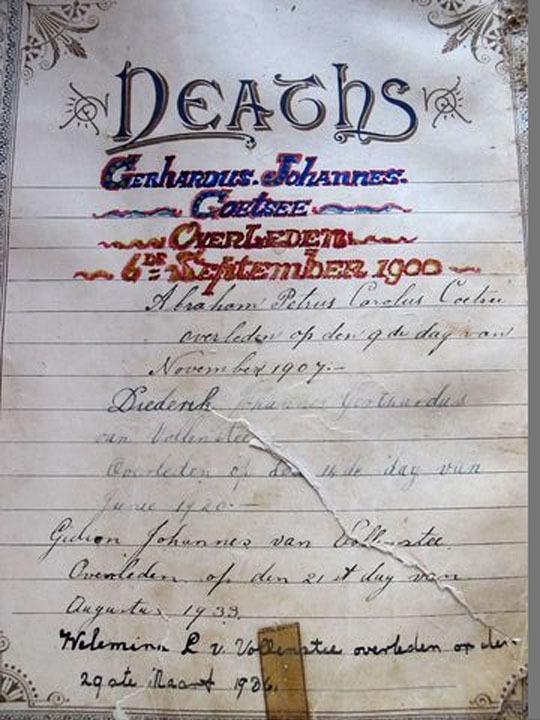 Deaths
Gerhardus. Johannes.
Coetsee
Overleden
6DE September 1900
Abraham Petrus Carolus Coetsee
overleden op den 9 de dag van
November 1907.-
Diederik Johannes Gerthardus
van Vollenstee
Overleden op den 14 de dag van
Junie 1920.-
Gideon Johannes van Vollenstee
Overleden op den 21 st dag van
Augustus 1933.
Welemina L v. Vollenstee overleden op der-
29 ste Maart 1936.